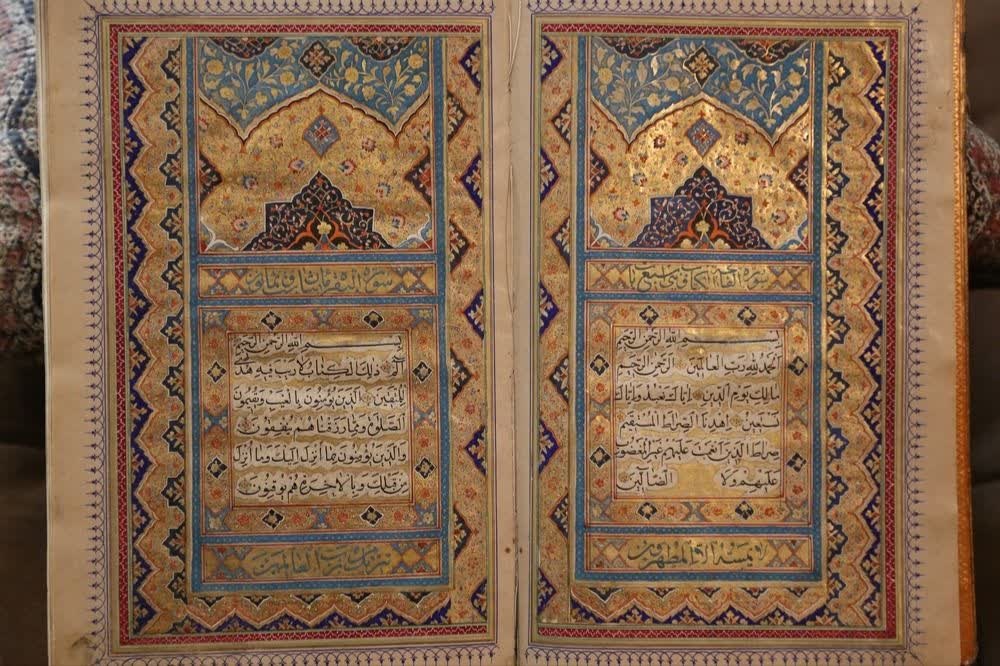 سورة الفاتحة الكتاب وهي سبع
بسم الله الرحمن الرحيم
الحمد لله رب العالمين الرحمن الرحيم
مالك يوم الدين اياك نعبد واياك
نستعين اهدنا الصراط المستقيم
صراط الذين انعمت عليهم غير المغضوب
عليهم ولا الضالين
لا يمسه الا المطهرون
سورة البقرة مائتان
بسم الله الرحمن الرحيم
الم ذلك الكتاب لا ريب فيه هدى
للمتقين الذين يؤمنون بالغيب ويقيمون
الصلوة ومما رزقناهم ينفقون
والذين يؤمنون بما انزل اليك وما انزل
من قبلك وبالاخرة هم يوقنون
تنزيل من رب العالمين